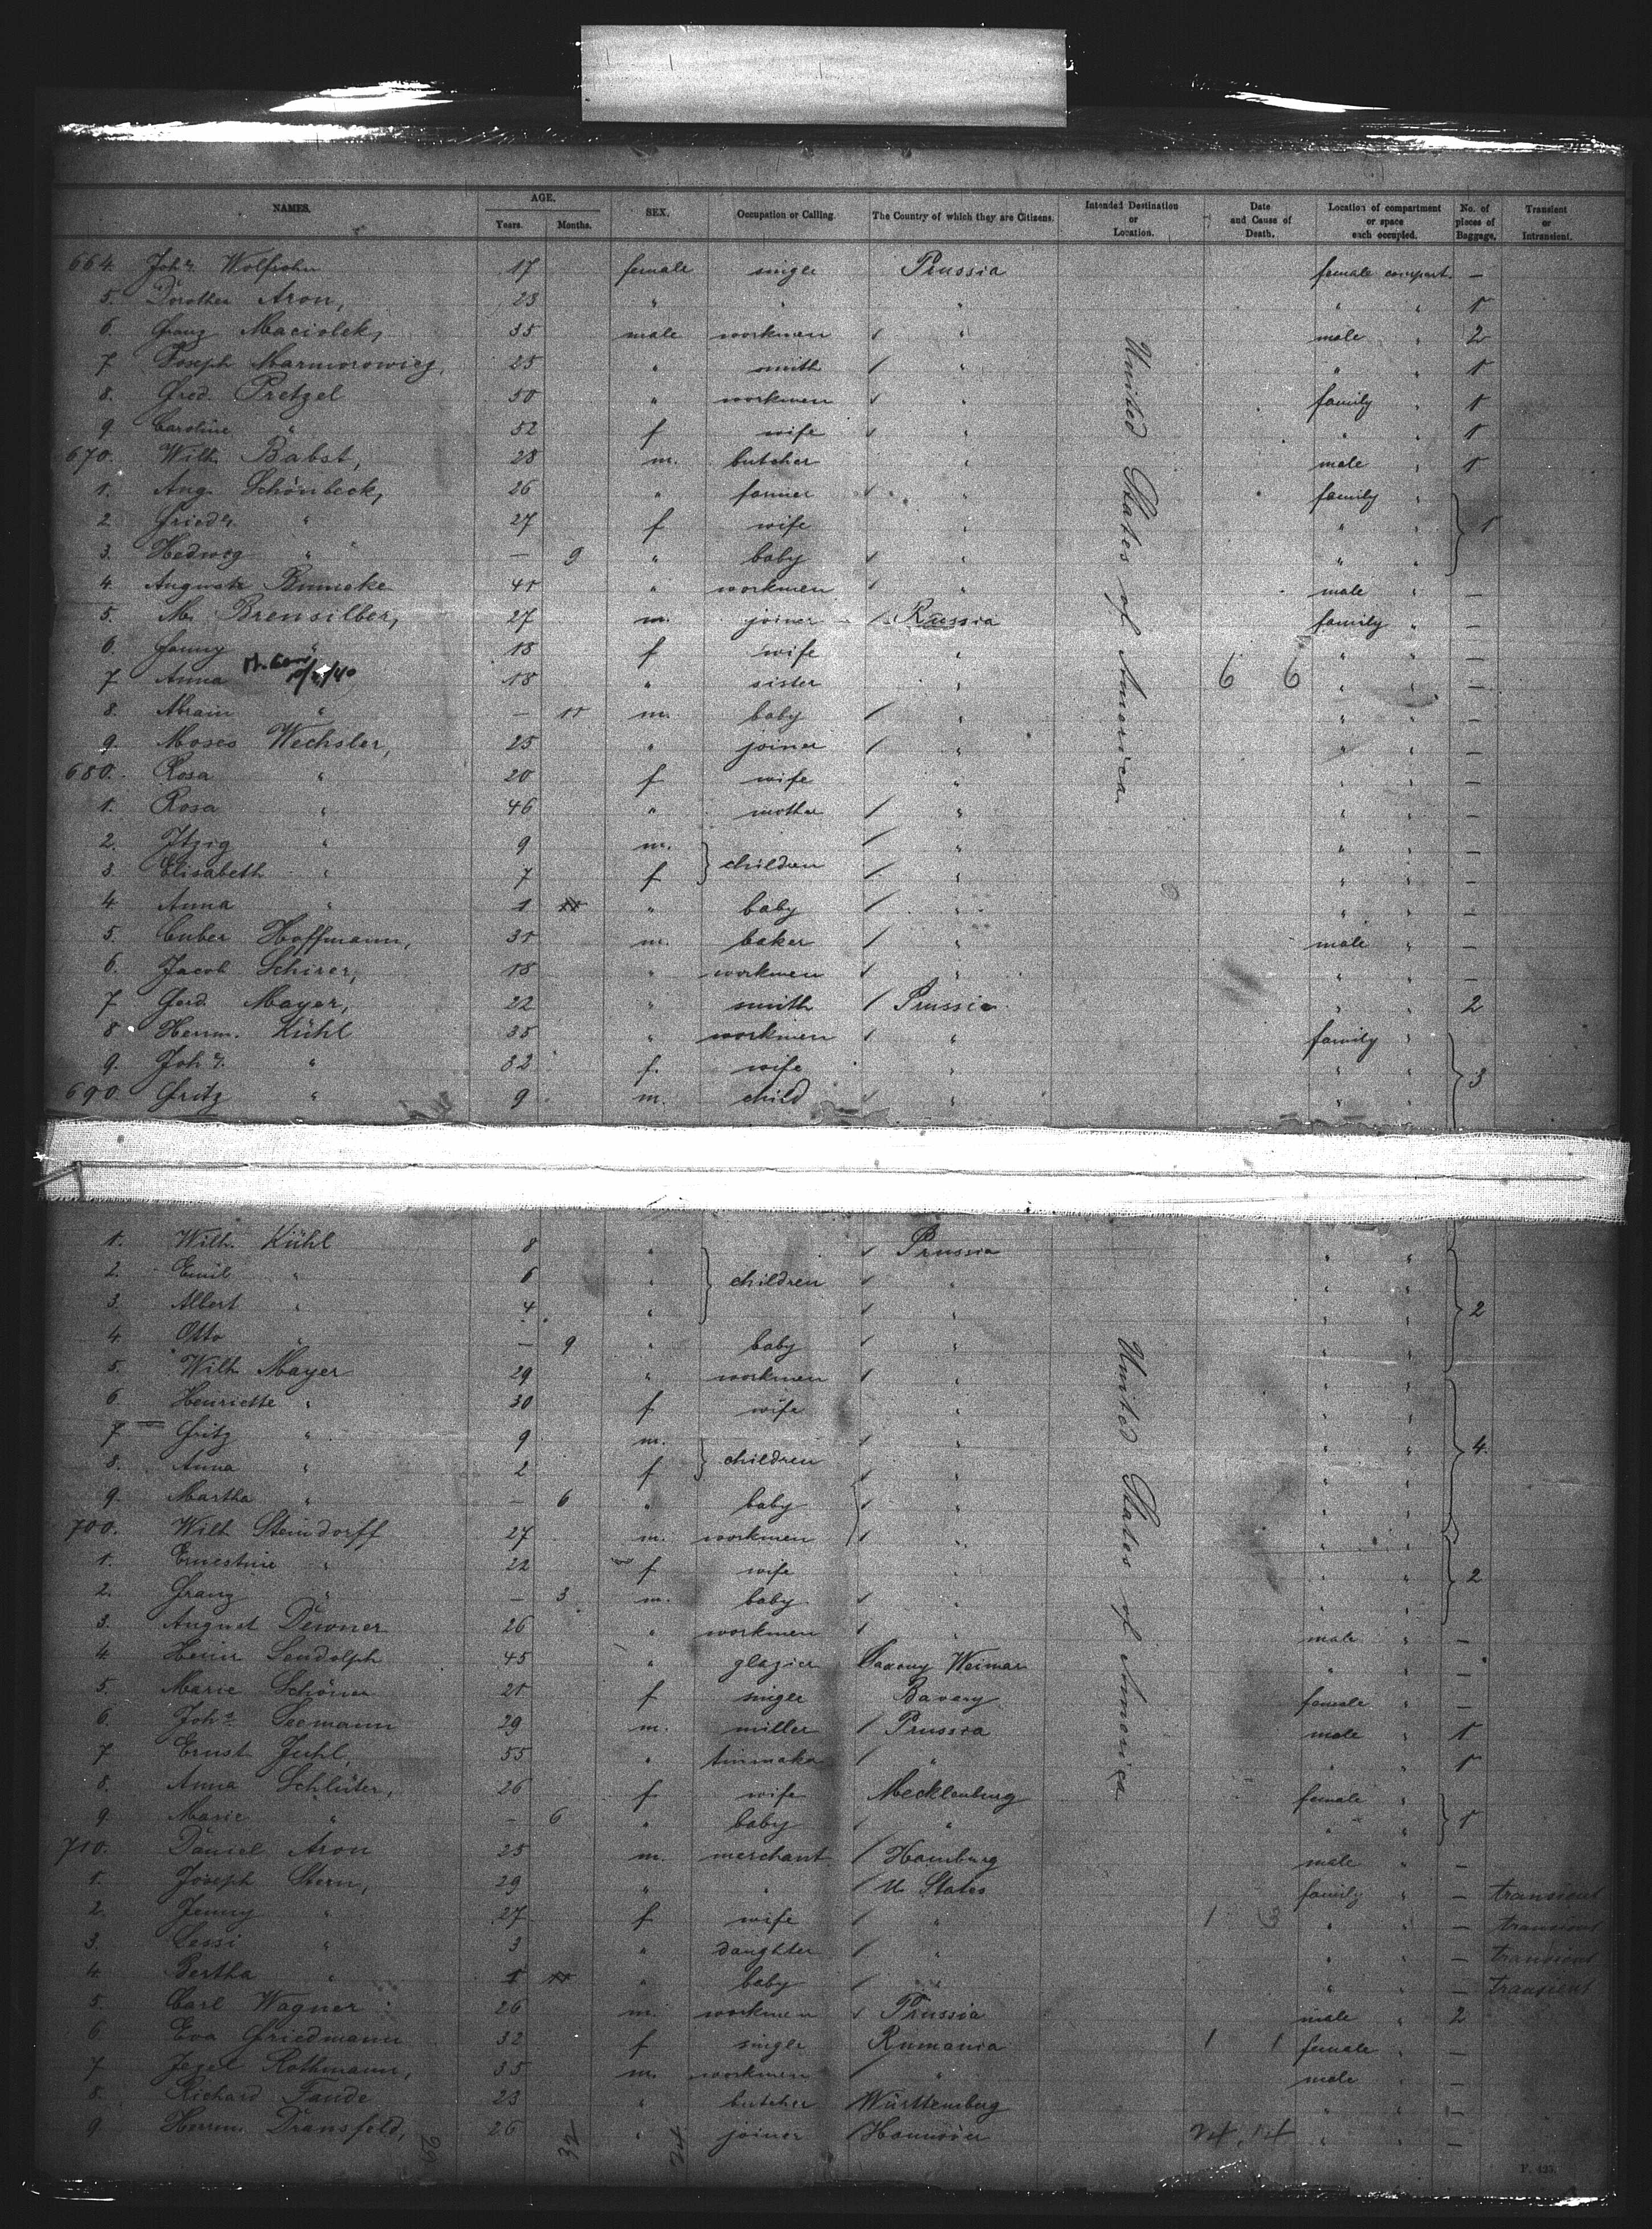 NAMES. AGE. Years. Months. SEX. Occupation or Calling. The Country of which they are Citizens. Intended Destination or Location. Date and Cause of Death. Location of compartment or space each occupied. No. of pieces of Baggage. Transient or Intransient.
664. Joh.a Wolfsohn 17 female single Prussia female compart. —
5. Dorothea Aron, 23 " " " " " 1
6. Franz Maciolek, 35 male workmen " male " 2
7 Joseph Marmorowicz, 25 " smith " " " 1
8. Fred. Pretzel 50 " workmen " family " 1
9 Caroline " 52 f wife " " " 1
670. Wilh. Babst, 28 m. butcher " male " 1
1. Aug. Schönbeck, 26 " farmer " family "
2 Fried.a " 27 f wife " " " 1
3. Hedwig " — 9 " baby " " "
4. Auguste 41 " workmen " male " —
5. M. Brensilber, 27 m. joiner Russia family " —
6. Fanny " 18 f wife " " " —
7 Anna 18 " sister " 6 6 " " —
8. Abram " — 11 m. baby " " " —
9. Moses Wechsler, 25 " joiner " " " —
680. Rosa " 20 f wife " " " —
1. Rosa " 46 " mother " " " —
2. Itzig " 9 m. " " " —
3. Elisabeth " 7 f children " " " —
4. Anna " 1 " baby " " " —
5. Cuber Hoffmann, 31 m. baker " male " —
6. Jacob Schirer, 18 " workmen " " " —
7 Ferd. Mayer, 22 " smith Prussia " " 2
8 Herrm. Kühl 35 " workmen " family "
9. Joh.a " 32 f. wife " " " 3
690. Fritz " 9 m. child " " "
United States of America
1. Wilh. Kühl 8 " Prussia " "
2. Emil " 6 " children " " "
3. Albert " 4 " " " " 2
4. Otto " — 9 " baby " " "
5. Wilh. Mayer 29 " workmen " " "
6. Henriette " 30 f wife " " "
7 Fritz " 9 m. " " " 4.
8. Anna " 2 f children " " "
9. Martha " — 6 " baby " " "
700. Wilh. Steindorff 27 m. workmen " " "
1. Ernestine " 22 f wife " " " 2
2. Franz " — 3 m. baby " " "
3. August Dewner 26 " workmen " male " —
4. Heinr. Landolph 45 " glazier Saxony Weimar " " —
5. Marie Schöner 21 f single Bavary female " —
6. Joh.s Seemann 29 m. miller Prussia male " 1
7 Ernst Juhl, 55 " tinmaker " " " 1
8. Anna Schlüter, 26 f wife Mecklenburg female "
9. Marie " — 6 " baby " " " 1
710. Daniel Aron 25 m. merchant Hamburg male " —
1. Joseph Stern, 29 " " U. States family " — transient
2. Jenny " 27 f wife " 1 3 " " — transient
3. Lessi " 3 " daughter " " " — transient
4. Bertha " 1 " baby " " " — transient
5. Carl Wagner 26 m. workmen Prussia male " 2
6 Eva Friedmann 32 f single Rumania 1 1 female " —
7 Jezel Rothmann, 35 m. workmen " male " —
8. Richard Taude 23 " butcher Württemberg " " —
9. Herrm. Dransfeld, 26 " joiner Hannover " " —
United States of America
29 32